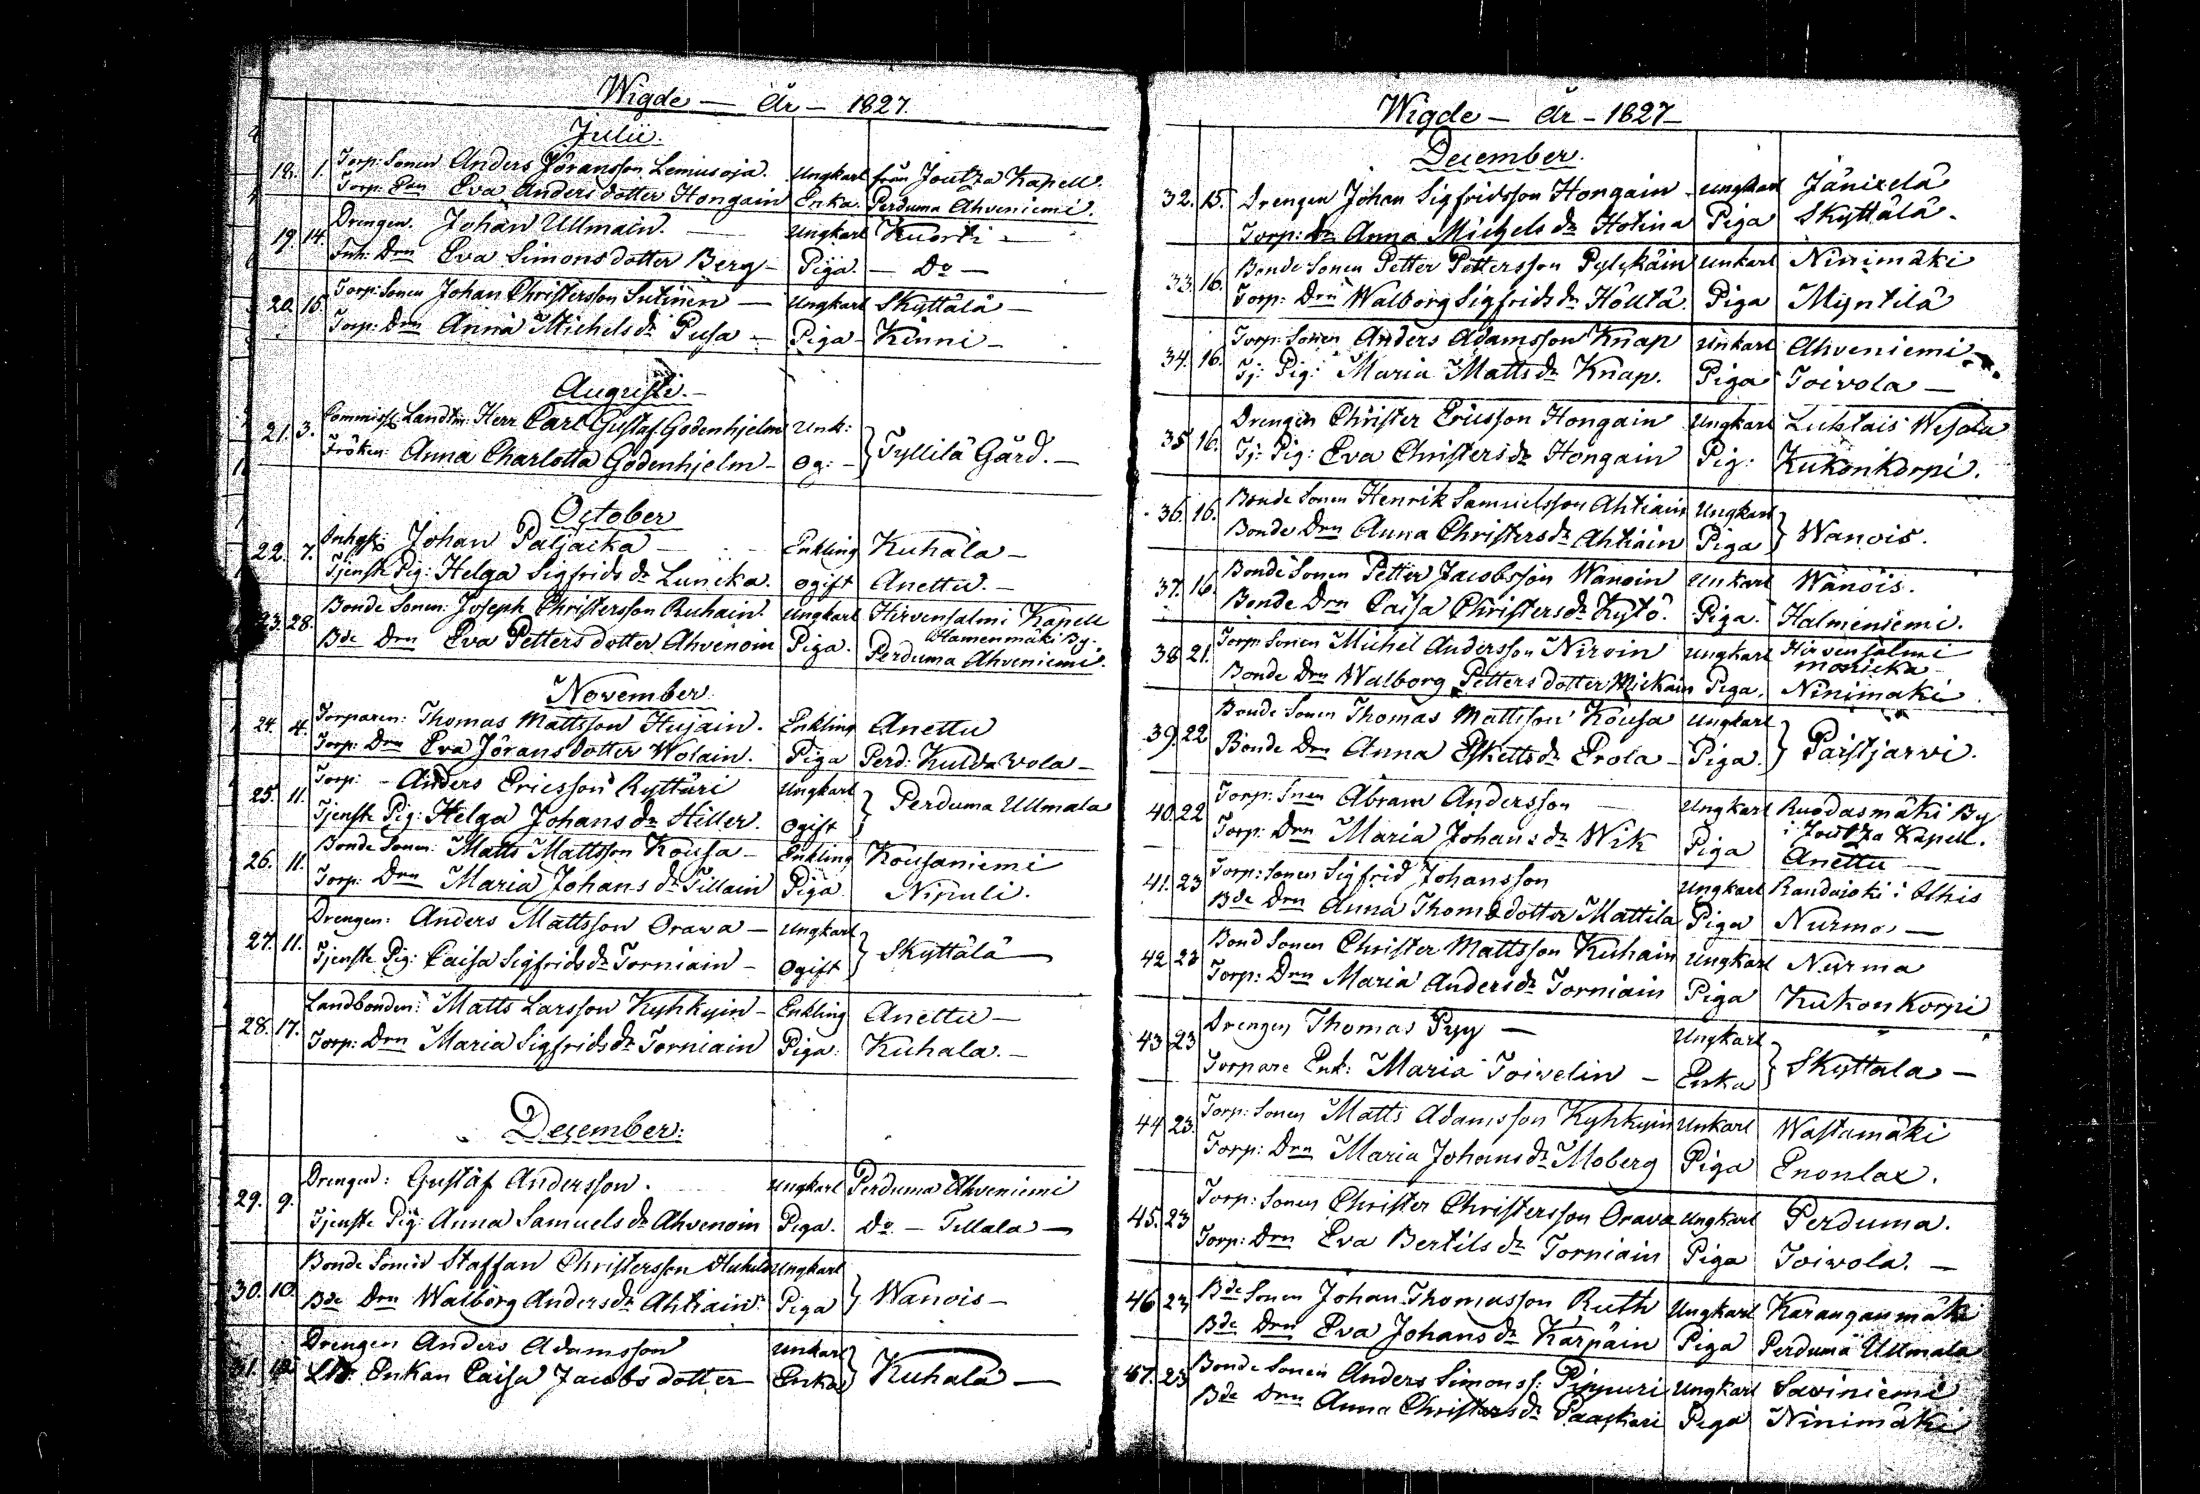 Wigde — År — 1827.
Julii.
18. 1. Torp: Sonen Anders Jöransson Lemusoja. Ungkarl från Joutza Kapell.
Torp: Enk Eva Anders dotter Hongain Enka. Perduma Ahveniemi.
19. 14. Drengen. Johan Ullmain. — Ungkarl Kuorti —
Inh: Drn Eva Simons dotter Berg — Piga. — Do —
20. 15. Torp: Sonen Johan Christersson Sutinen — Ungkarl Skyttälä —
Torp: Drn Anna Michels dr Pusa — Piga — Kinni —
Augusti. —
21. 3. Commiss: Landtm: Herr Carl Gustaf Godenhjelm Unk:
Fröken: Anna Charlotta Godenhjelm — Og: — } Tyllilä Gård. —
October
22. 7. Inhys: Johan Paljacka — Enkling Kuhala —
Tjenste Pig: Helga Sigfrids dr Luncka. ogift Anettu. —
23. 28. Bonde Sonen: Joseph Christersson Ruhain. Ungkarl Hirvensalmi Kapell
Hamenmäki By.
Bde Drn Eva Petters dotter Ahvenoin Piga. Perduma Ahveniemi.
November
24. 4. Torparen: Thomas Mattsson Hujain. Enkling Anettu
Torp: Drn Eva Jörans dotter Wolain. Piga Perd: Kulda vola —
25. 11. Torp: — Anders Ericsson Ryttäri Ungkarl
Tjenste Pig: Helga Johans dr Hiller. Ogift } Perduma Ullmala
26. 11. Bonde Sonen: Matts Mattsson Kousa — Enkling Kousaniemi
Torp: Drn Maria Johans dr Tillain Piga Nipuli.
27. 11. Drengen: Anders Mattsson Orava — Ungkarl
Tjenste Pig: Caisa Sigfrids dr Torniain — Ogift } Skyttälä —
28. 17. Landbonden: Matts Larsson Kyhkyin — Enkling Anettu —
Torp: Drn Maria Sigfrids dr Torniain Piga: Kuhala. —
December:
29. 9. Drengen: Gustaf Andersson. Ungkarl Perduma Ahveniemi
Tjenste Pig: Anna Samuels dr Ahvenoin Piga. Do — Tillala —
30. 10. Bonde Sonen Staffan Christersson Ungkarl
Bde Drn Walborg Anders dr Ahtiain. Piga } Wanois —
31. Drengen Anders Adamsson Unkarl
Enkan Caisa Jacobs dotter — Enka } Kuhala —
Wigde — År — 1827 —
December.
32. 15. Drengen Johan Sigfridsson Hongain — Ungkarl Jänixelä
Torp: Dr Anna Michels dr Hotina Piga Skyttälä.
33. 16. Bonde Sonen Petter Pettersson Pylykäin Unkarl Ninimäki
Torp: Drn Walborg Sigfrids dr Höltä. Piga Myntilä
34. 16. Torp: Sonen Anders Adamsson Knap Unkarl Ahveniemi —
Tj: Pig: Maria Matts dr Knap. Piga Toivola —
35 16. Drengen Christer Ericsson Hongain Ungkarl Luhtais Wesala
Tj: Pig: Eva Christers dr Hongain Pig: Kukonkorpi.
36. 16. Bonde Sonen Henrik Samuelsson Ahtiain Ungkarl
Bonde Drn Anna Christers dr Ahtiain Piga } Wanois.
37. 16 Bonde Sonen Petter Jacobsson Wanoin Unkarl Wanois.
Bonde Drn Caisa Christers dr Kytö. Piga. Halmeniemi.
38 21. Torp: Sonen Michel Andersson Nirvin Ungkarl Hirvensalmi
Monicka
Bonde Drn Walborg Petters dotter Mickain Piga. Ninimäki
39. 22 Bonde Sonen Thomas Mattsson Kousa Ungkarl
Bonde Drn Anna Eskells dr Erola — Piga. } Paistjarvi.
40. 22 Torp: Snen Abram Andersson — Ungkarl Ruodasmäki By
i Joutza Kapell.
Torp: Drn Maria Johans dr Wik Piga Anettu —
41. 23 Torp: Sonen Sigfrid Johansson Ungkarl Randajoki i Ithis
Bde Drn Anna Thoms dotter Mattila Piga Nurma —
42 23 Bond Sonen Christer Mattsson Kuhain Ungkarl Nurma
Torp: Drn Maria Anders dr Torniain Piga Kukonkorpi
43 23 Drengen Thomas Pyy — Ungkarl
Torpare Enk: Maria Toivelin — Enka } Skyttala —
44 23. Torp: Sonen Matts Adamsson Kyhkyin Unkarl Wastamäki
Torp: Drn Maria Johans dr Moberg Piga Enonlax.
45. 23 Torp: Sonen Christer Christersson Orava Ungkarl Perduma.
Torp: Drn Eva Bertils dr Torniain Piga Toivola. —
46 23 Bde Sonen Johan Thomasson Ruth Ungkarl Karanganmäki
Bde Drn Eva Johans dr Karpäin Piga Perduma Ullmala
47. 23 Bonde Sonen Anders Simonss: Pippuri Ungkarl Saviniemi
Bde Drn Anna Christers dr Paaskari Piga Ninimäki